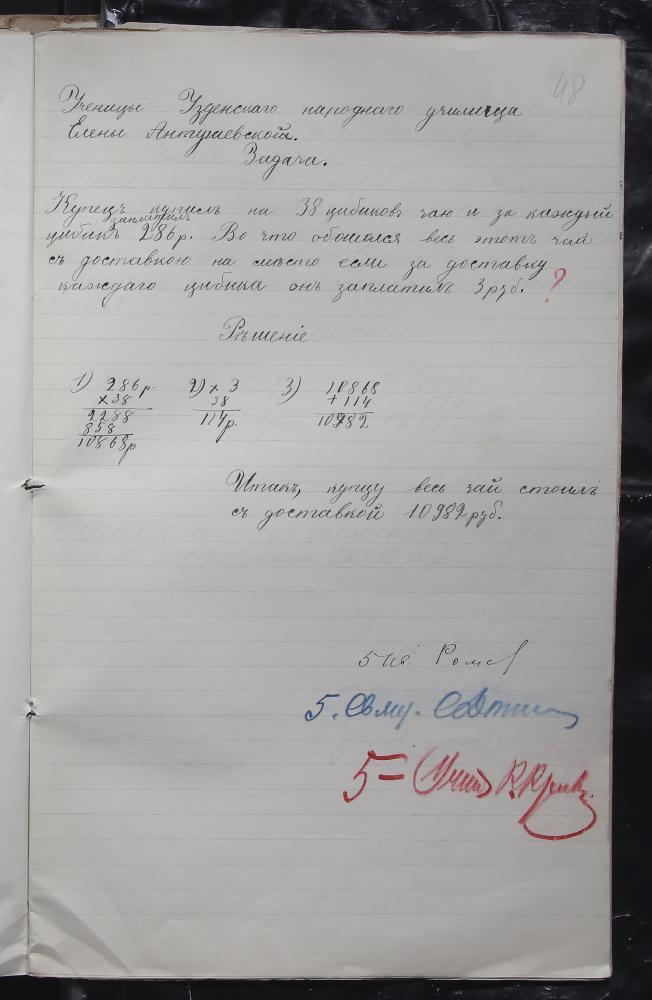 48
Ученицы Узденскаго народнаго училища
Елены Антушевской.
Задача.
Купецъ купилъ на 38 цибиковъ чаю и за каждый
заплатилъ
цибикъ 286 р. Во что обошолся весь этотъ чай
съ доставкою на мѣсто если за доставку
каждаго цибика онъ заплатилъ 3 руб. ?
Рѣшеніе
1) 286 р. 2) х 3 3) 10868
х 38 38 + 114
2288 114 р. 10982
858
10868 р
Итакъ, купцу весь чай стоилъ
съ доставкой 10982 руб.
5
5.
5 =